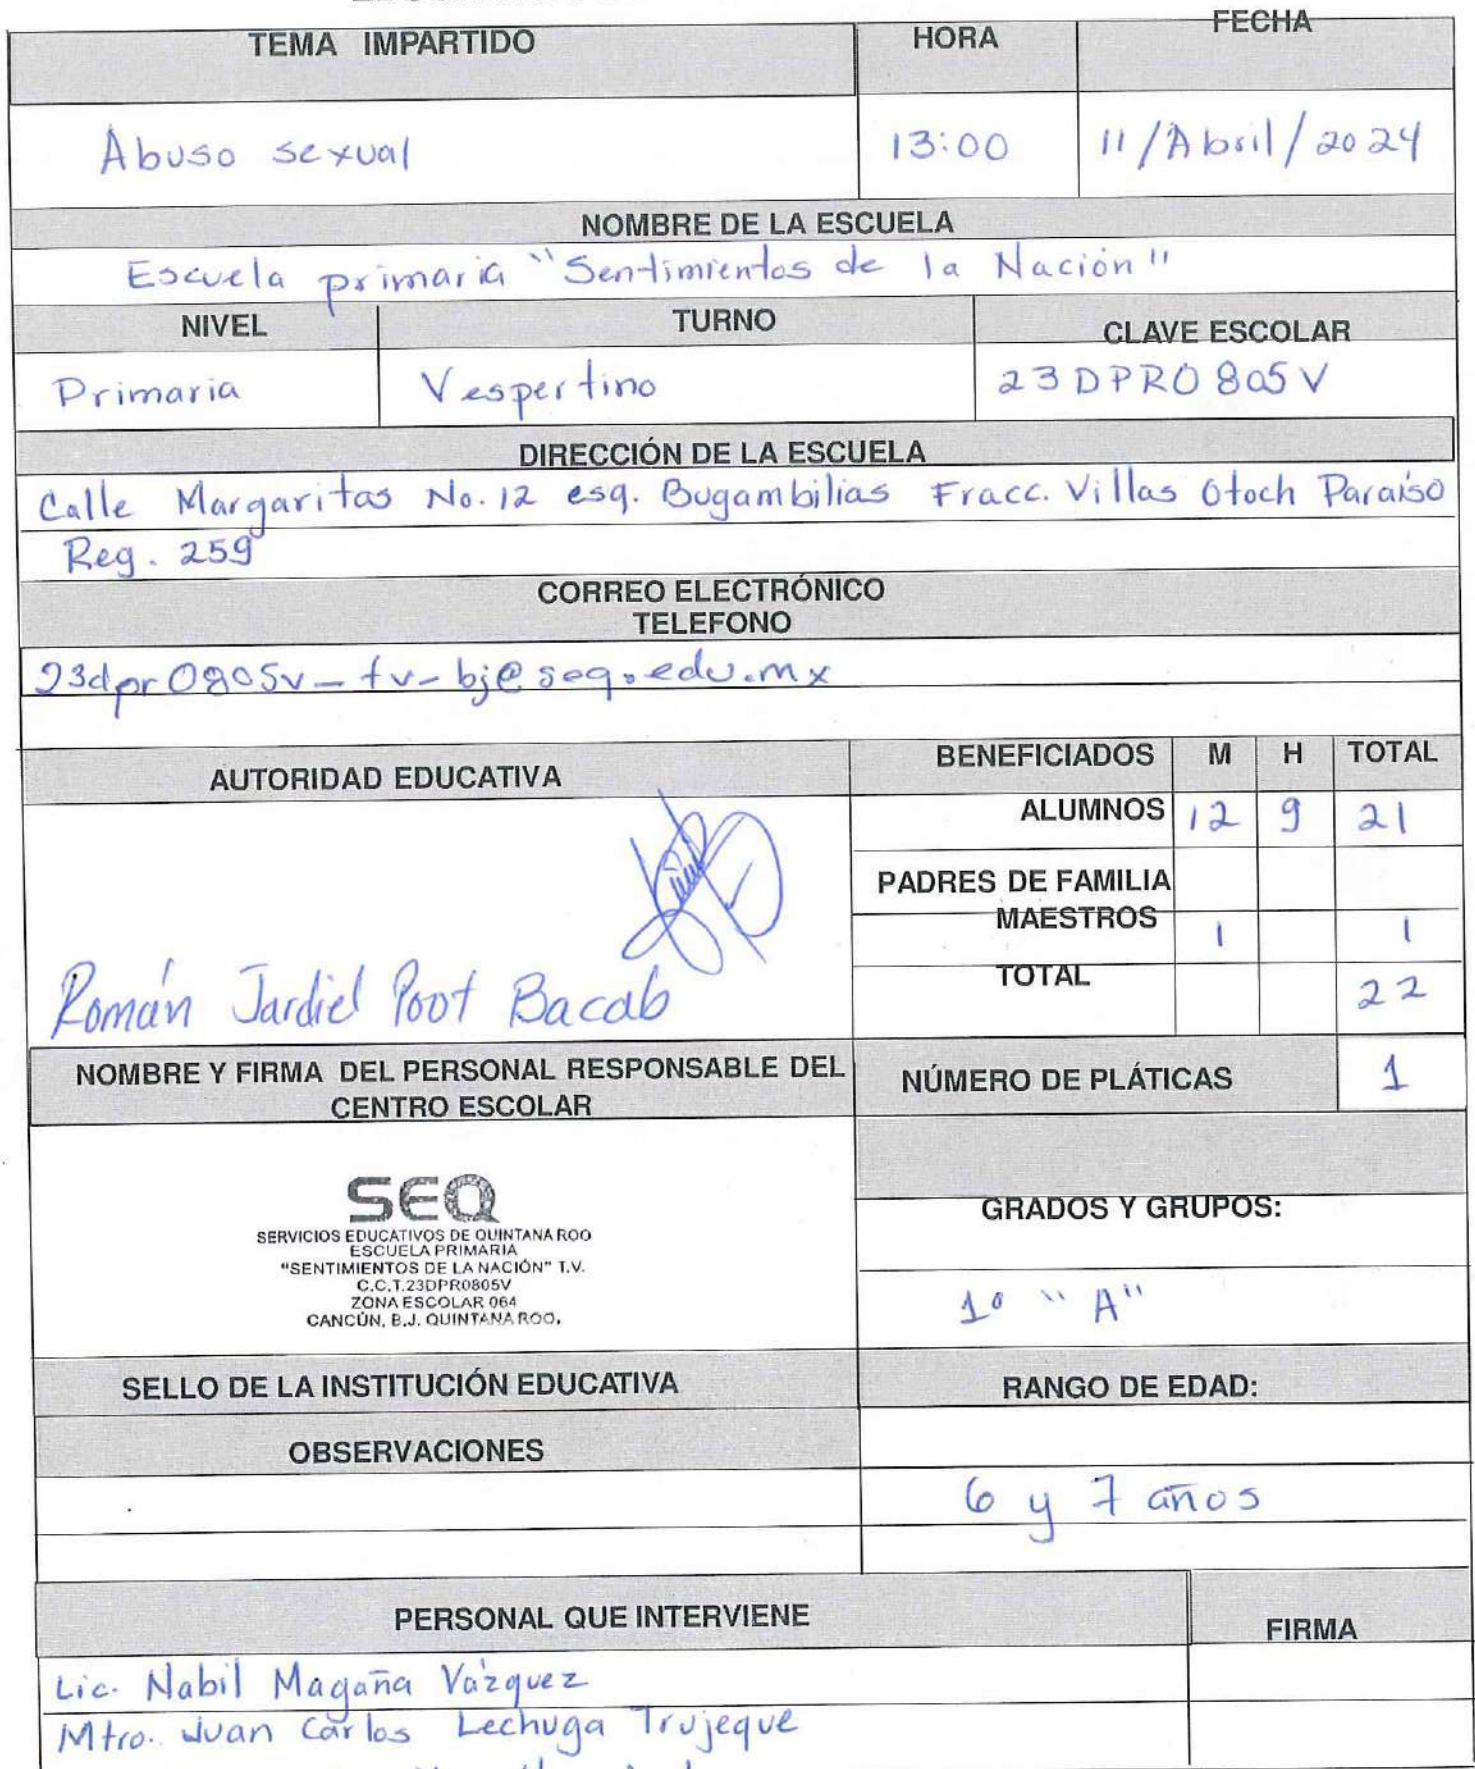 TEMA IMPARTIDO HORA FECHA
Abuso sexual 13:00 11/Abril/2024
NOMBRE DE LA ESCUELA
Escuela primaria "Sentimientos de la Nación"
NIVEL TURNO CLAVE ESCOLAR
Primaria Vespertino 23DPR0805V
DIRECCIÓN DE LA ESCUELA
Calle Margaritas No. 12 esq. Bugambilias Fracc. Villas Otoch Paraíso
Reg. 259
CORREO ELECTRÓNICO
TELEFONO
23dpr0805v_tv_bj@seq.edu.mx
AUTORIDAD EDUCATIVA BENEFICIADOS M H TOTAL
ALUMNOS 12 9 21
PADRES DE FAMILIA
MAESTROS 1 1
TOTAL 22
Román Jardiel Poot Bacab
NOMBRE Y FIRMA DEL PERSONAL RESPONSABLE DEL
CENTRO ESCOLAR
NÚMERO DE PLÁTICAS 1
SEQ
SERVICIOS EDUCATIVOS DE QUINTANA ROO
ESCUELA PRIMARIA
"SENTIMIENTOS DE LA NACIÓN" T.V.
C.C.T.23DPR0805V
ZONA ESCOLAR 064
CANCÚN, B.J. QUINTANA ROO.
GRADOS Y GRUPOS:
1º "A"
SELLO DE LA INSTITUCIÓN EDUCATIVA RANGO DE EDAD:
OBSERVACIONES
6 y 7 años
PERSONAL QUE INTERVIENE FIRMA
Lic. Nabil Magaña Vázquez
Mtro. Juan Carlos Lechuga Trujeque